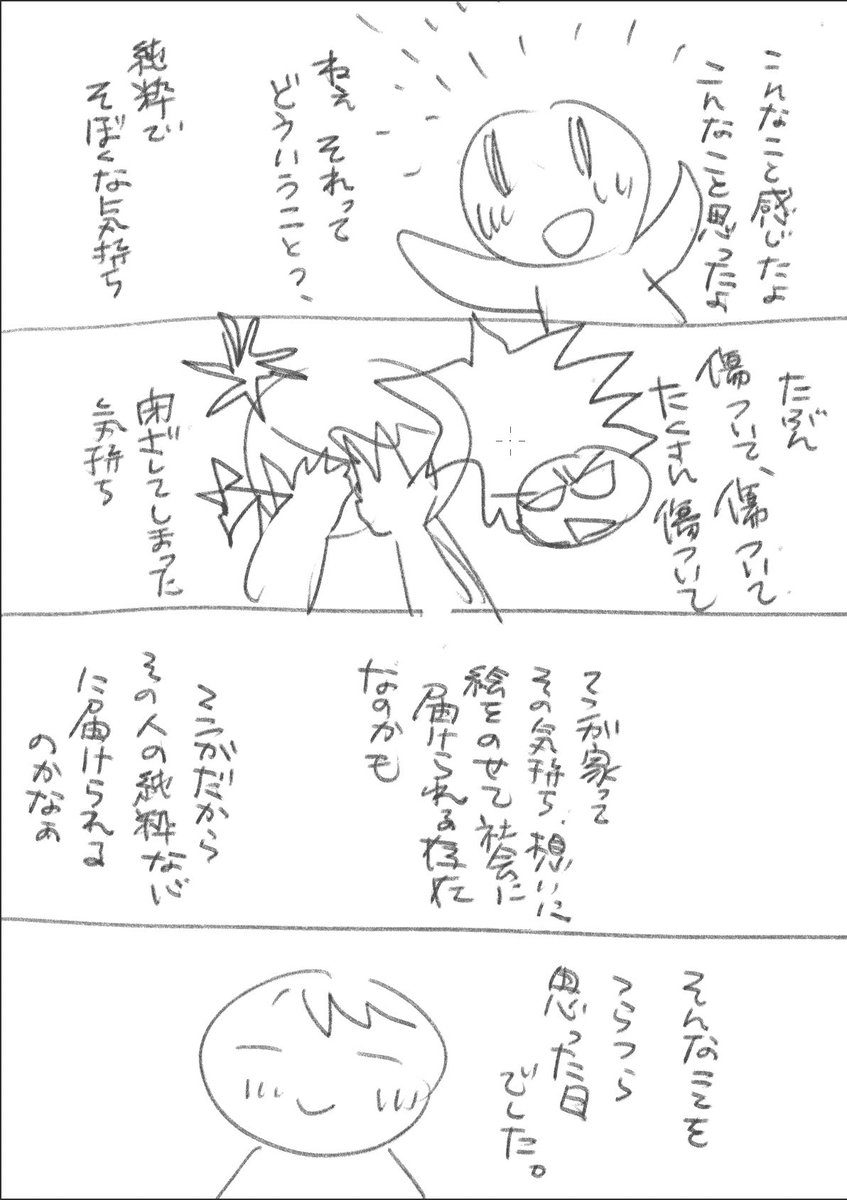 こんなこと感じたよ
こんなこと思ったよ
ねぇ それって
どういうこと?、
純粋で
そぼくな気持ち
たぶん
傷ついて、傷ついて
たくさん傷ついて
閉ざしてしまった
気持ち
マンガ家って
その気持ち、想いに
絵をのせて社会に
届けられる存在
なのかも
マンガだから
その人の純粋な心
に届けられる
のかなぁ
そんなことを
つらつら
思った日
でした。